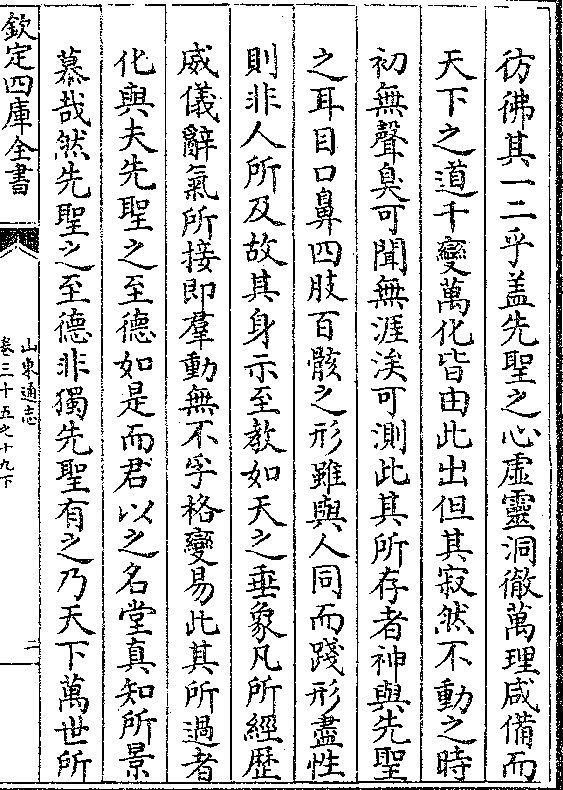 彷彿其一二乎盖先聖之心虚靈洞徹萬理咸備而
天下之道千變萬化皆由此出但其寂然不動之時
初無聲臭可聞無涯涘可測此其所存者神與先聖
之耳目口鼻四肢百骸之形雖與人同而踐形盡性
則非人所及故其身示至教如天之垂象凡所經歴
威儀辭氣所接即羣動無不孚格變易此其所過者
化與夫先聖之至德如是而君以之名堂真知所景
慕哉然先聖之至德非獨先聖有之乃天下萬世所
欽定四庫全書
山東通志
卷三十五之十九下
二